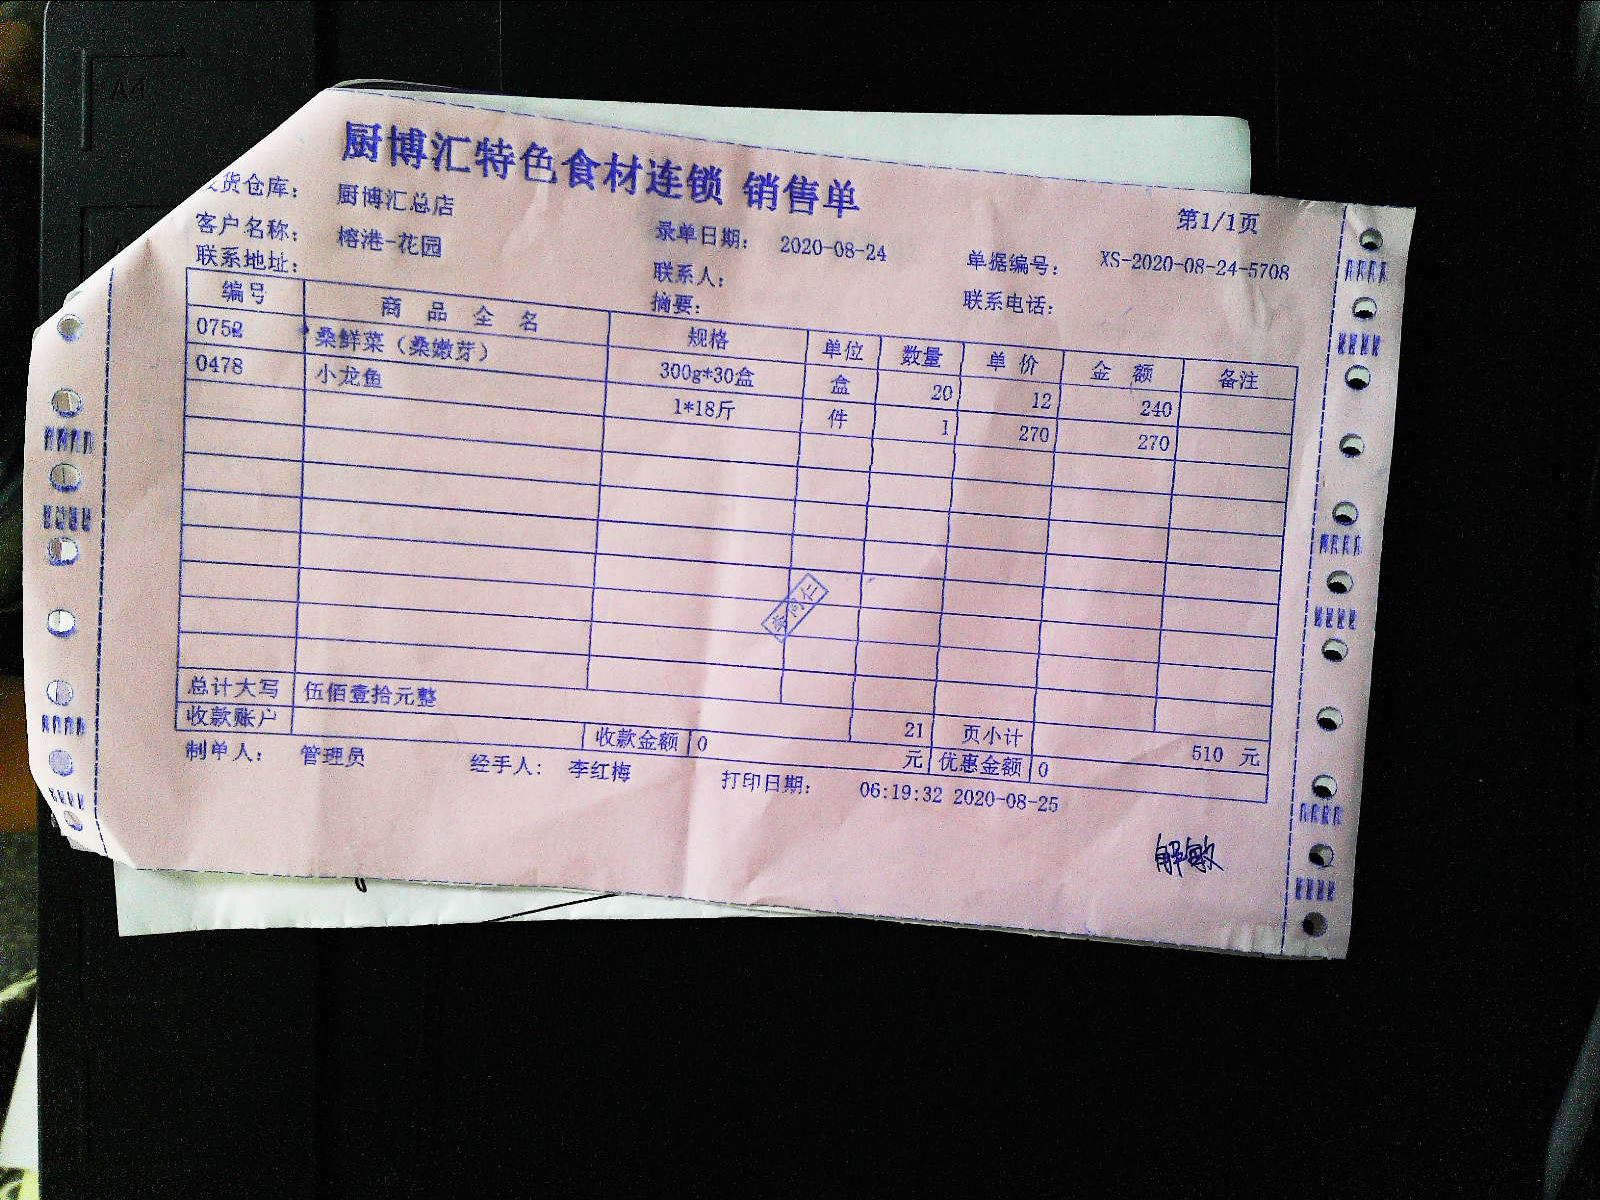 厨博汇特色食材连锁 销售单
第1/1页
发货仓库: 厨博汇总店
客户名称: 榕港-花园 录单日期: 2020-08-24 单据编号: XS-2020-08-24-5708
联系地址: 联系人: 联系电话:
摘要:
编号 商品全名 规格 单位 数量 单价 金额 备注
0752 桑鲜菜（桑嫩芽） 300g*30盒 盒 20 12 240
0478 小龙鱼 1*18斤 件 1 270 270
总计大写 伍佰壹拾元整 21 页小计 510 元
收款账户 收款金额 0 元 优惠金额 0
制单人: 管理员 经手人: 李红梅 打印日期: 06:19:32 2020-08-25
解敏